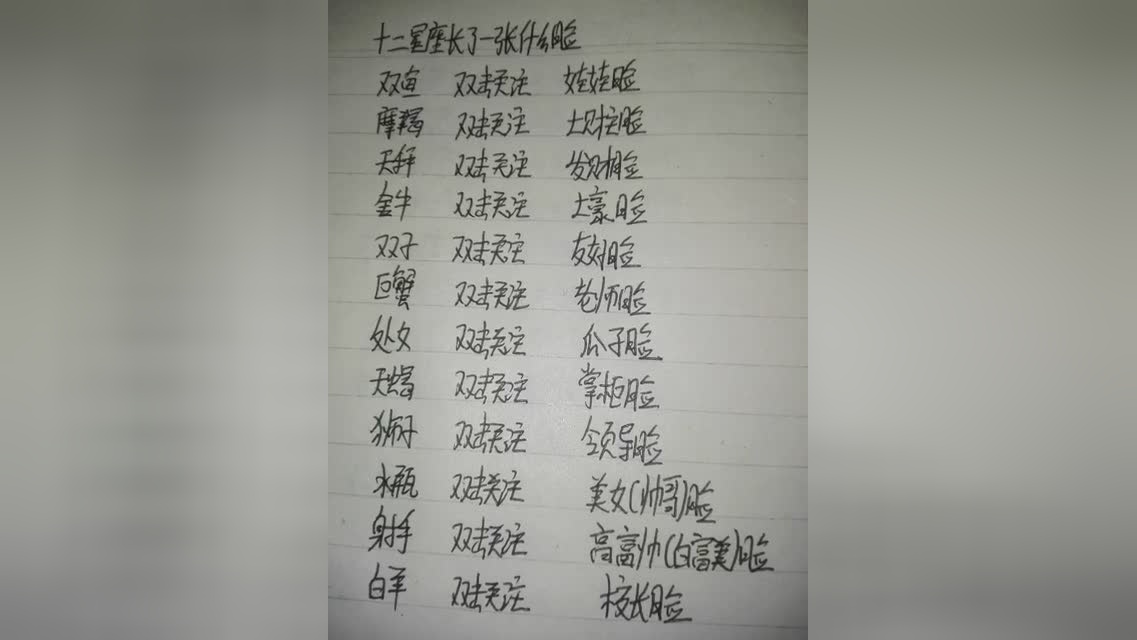 十二星座长了一张什么脸
双鱼 双击关注 娃娃脸
摩羯 双击关注 土财主脸
天秤 双击关注 发财相脸
金牛 双击关注 土豪脸
双子 双击关注 友好脸
巨蟹 双击关注 老师脸
处女 双击关注 瓜子脸
天蝎 双击关注 掌柜脸
狮子 双击关注 领导脸
水瓶 双击关注 美女(帅哥)脸
射手 双击关注 高富帅(白富美)脸
白羊 双击关注 校长脸